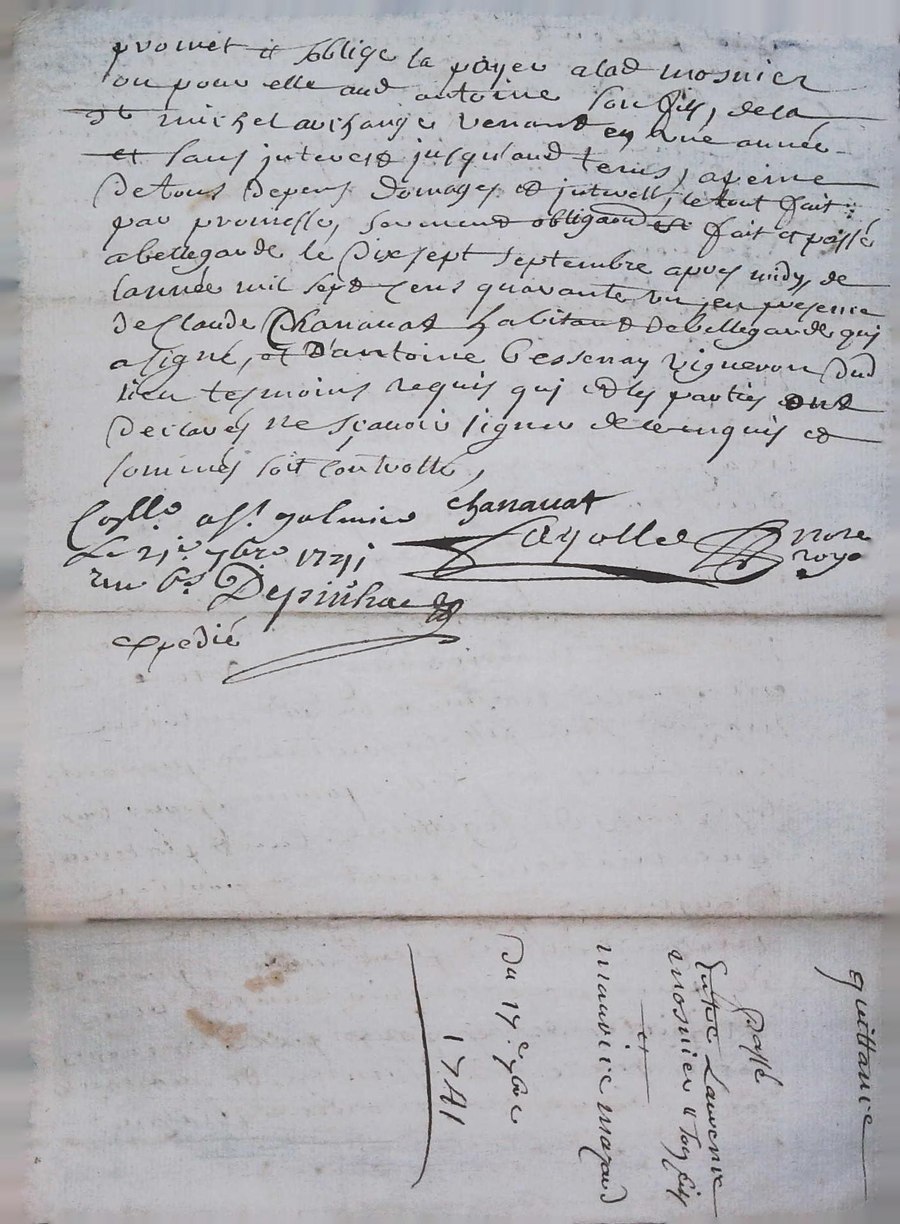 promet et soblige la payer a lad mosnier
ou pour elle aud antoine son fils, de la
st michel archange venant en une année
et sans interest jusquaud temis, a peine
de tous depens domages et interests, le tout fait
par promesse, serment obligaon et fait et passé
a bellegarde le dix sept septembre apres midy, de
lannée mil sept cens quarante un, en presence
de Claude Chanauat habitant de bellegarde qui
a signé, et d'antoine Bessenay vigneron dud
lieu tesmoins requis qui et les parties ont
declarés ne sçavoir signer de ce enquis et
sommés soit controllé,
Chanauat
Conllé a st galmier
Le 21e 7bre 1741
Fayolle nore
royal
Depinhac
expedié
quittance
passé
Entre Laurence
mosnier & son fils
et
maurice mazaud
Du 17e 7bre
1741